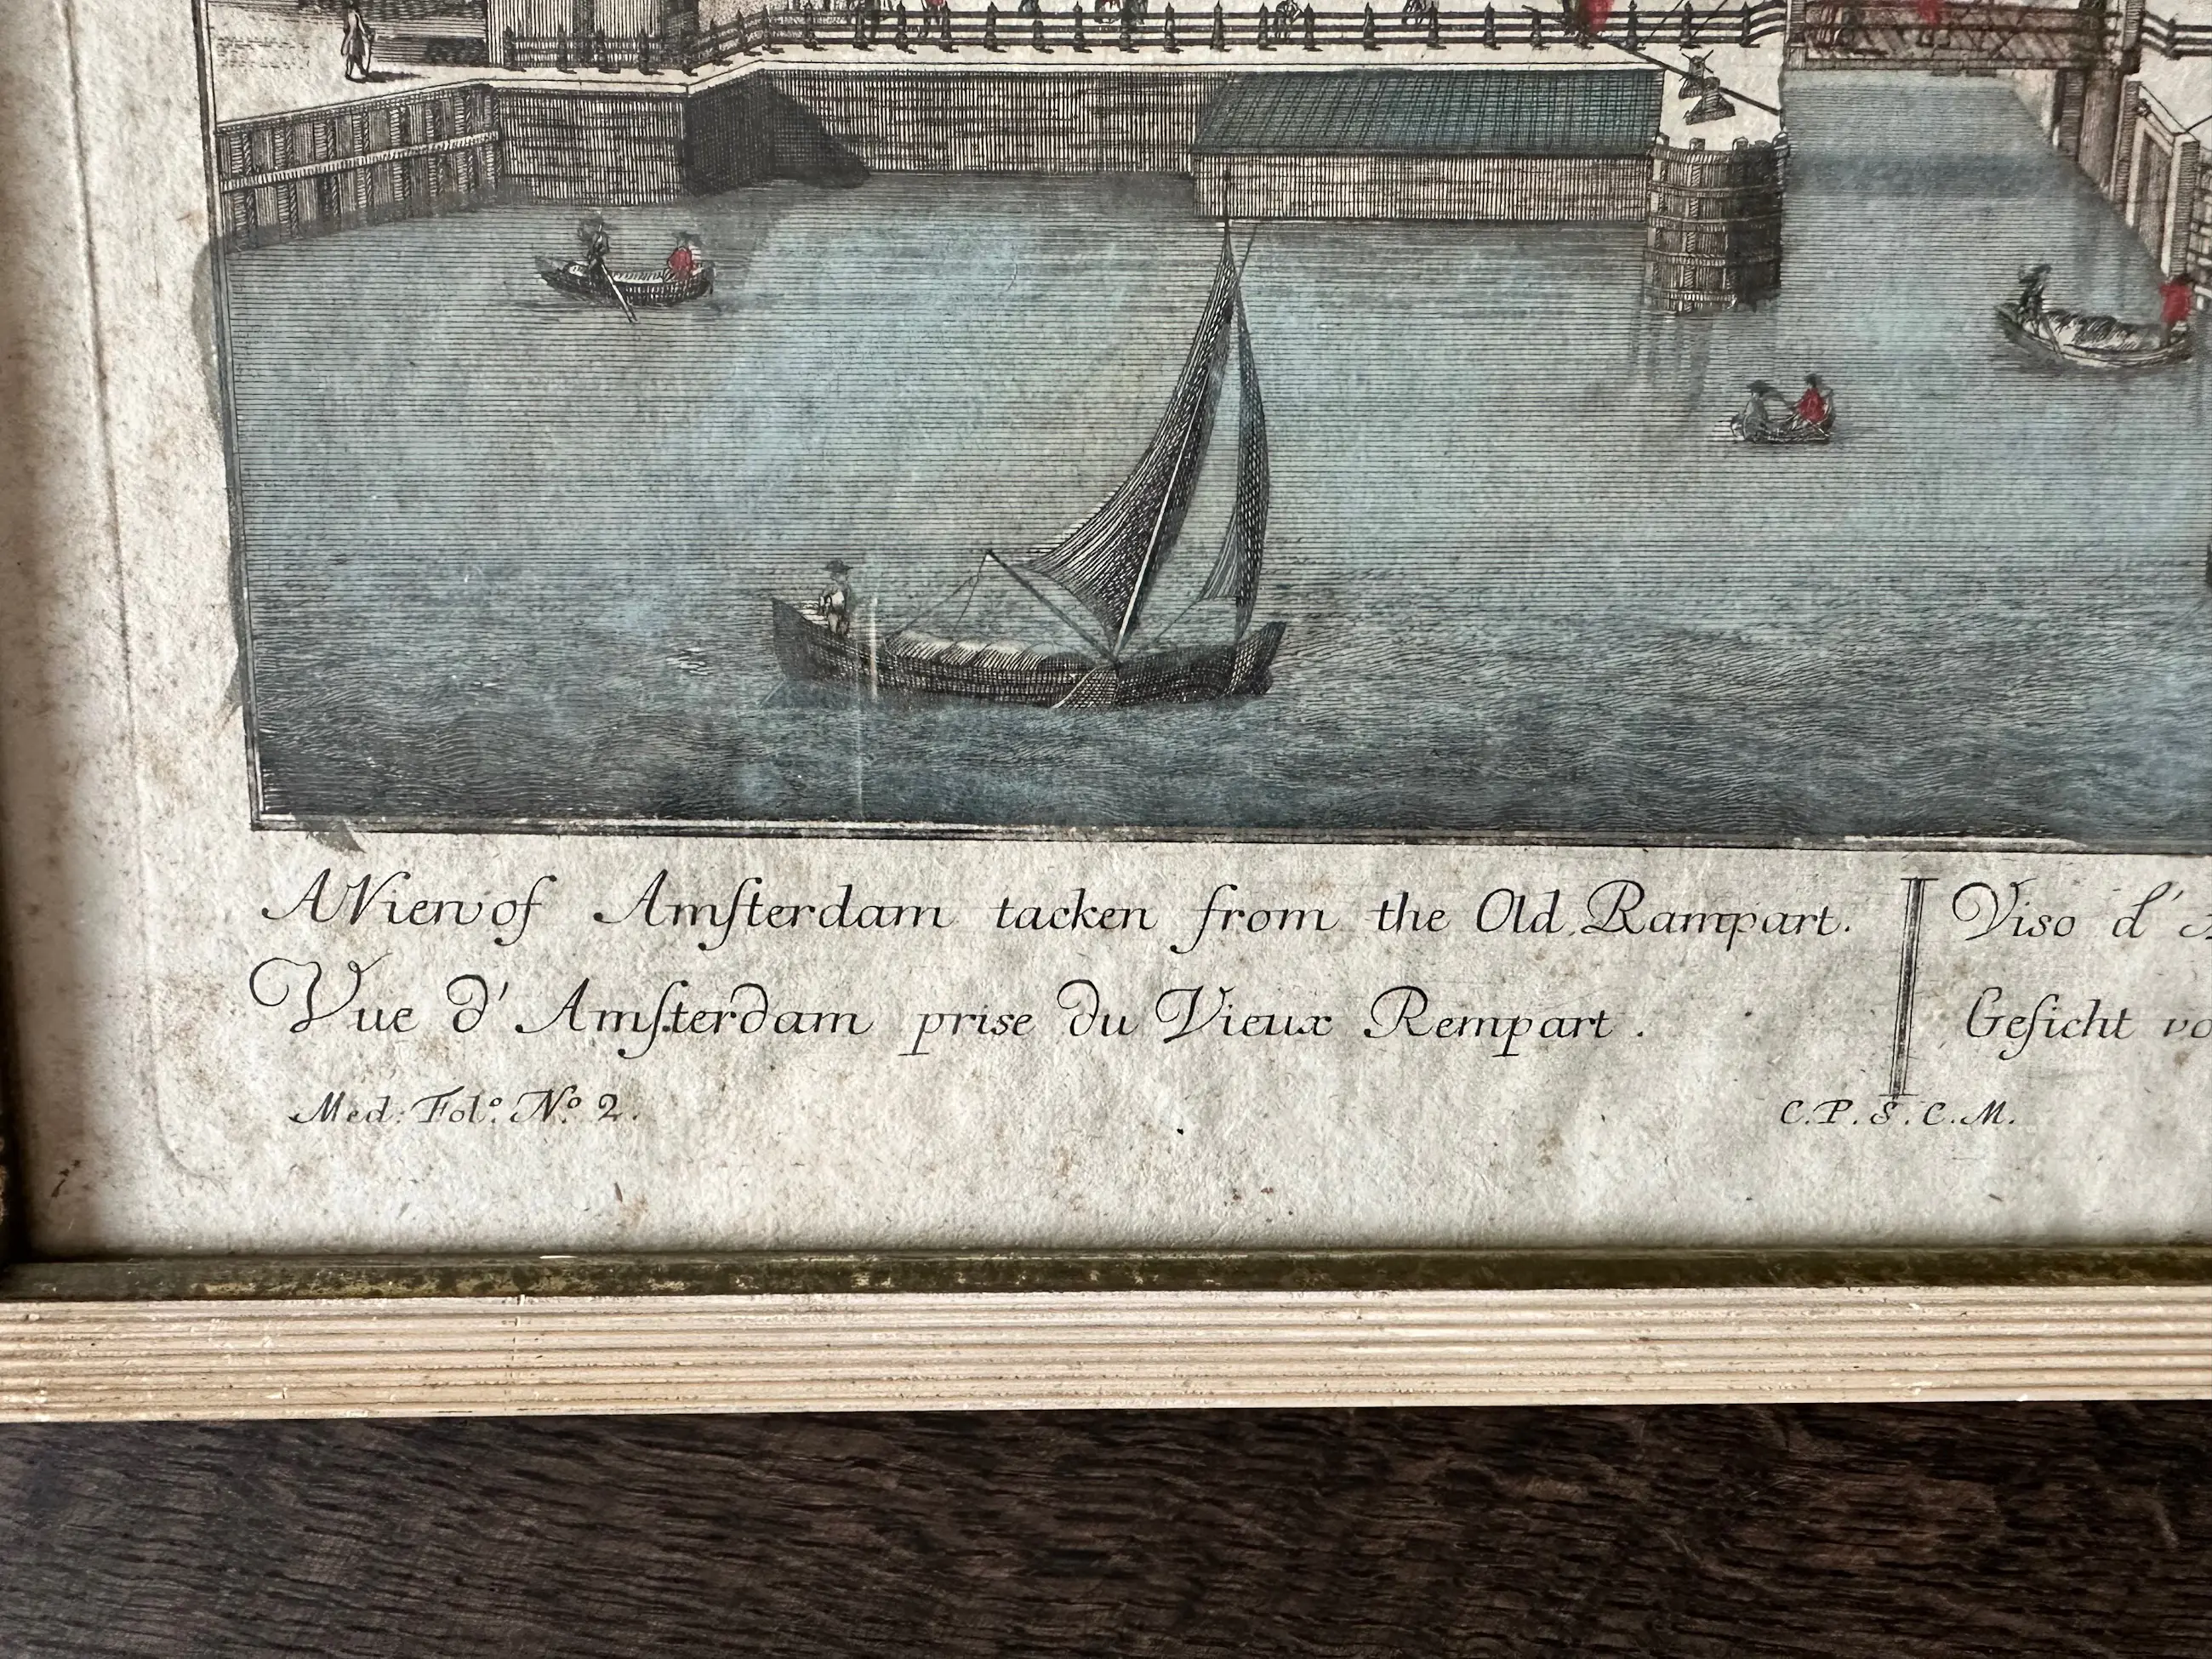 A View of Amſterdam tacken from the Old Rampart.
Vue d'Amſterdam prise du Vieux Rempart.
Viso d'
Geſicht
Med: Fol.º Nº 2.
C.P.S.C.M.